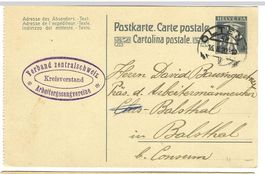 Adresse des Absenders. - Text.
Adresse de l'expéditeur. - texte.
Indirizzo del mittente. - Testo.
Postkarte. Carte postale.
Cartolina postale.
HELVETIA
Verband zentralschweiz.
Kreisvorstand
Arbeitergesangvereine
Herrn David
Präs. d. Arbeitermännerchor
Balsthal
in Balsthal
b. Consum